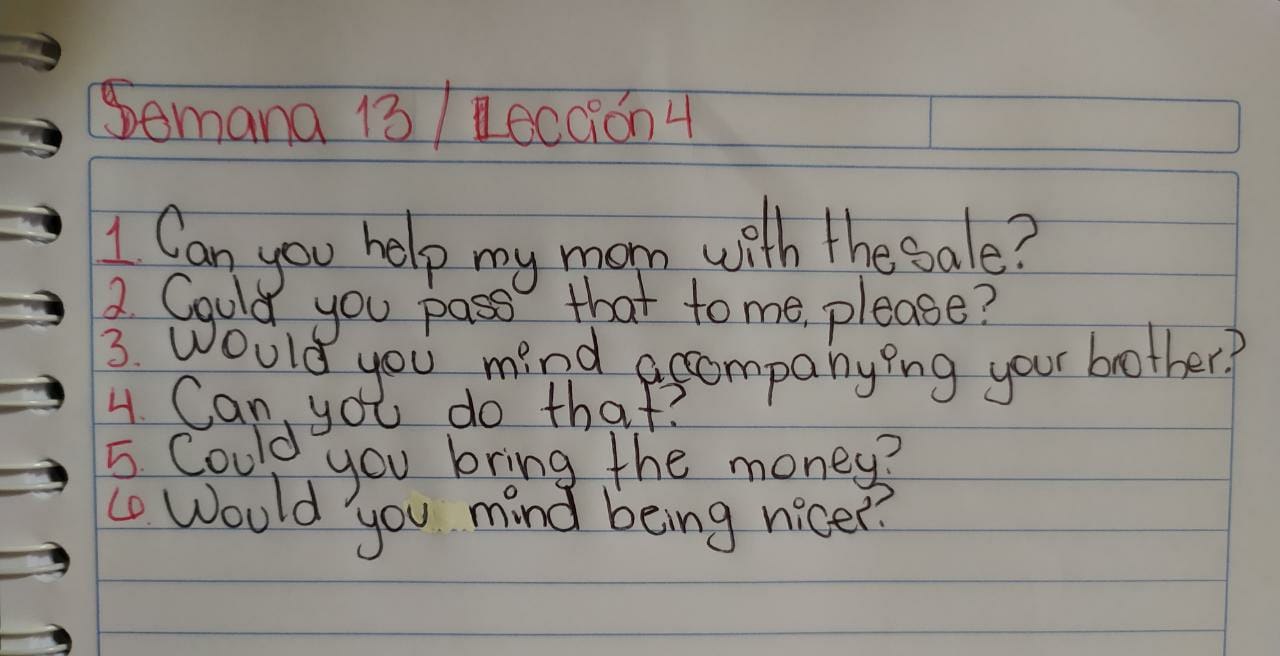 Semana 13 / Lección 4
1. Can you help my mom with the sale?
2. Could you pass that to me, please?
3. Would you mind accompanying your brother?
4. Can you do that?
5. Could you bring the money?
6. Would you mind being nicer?